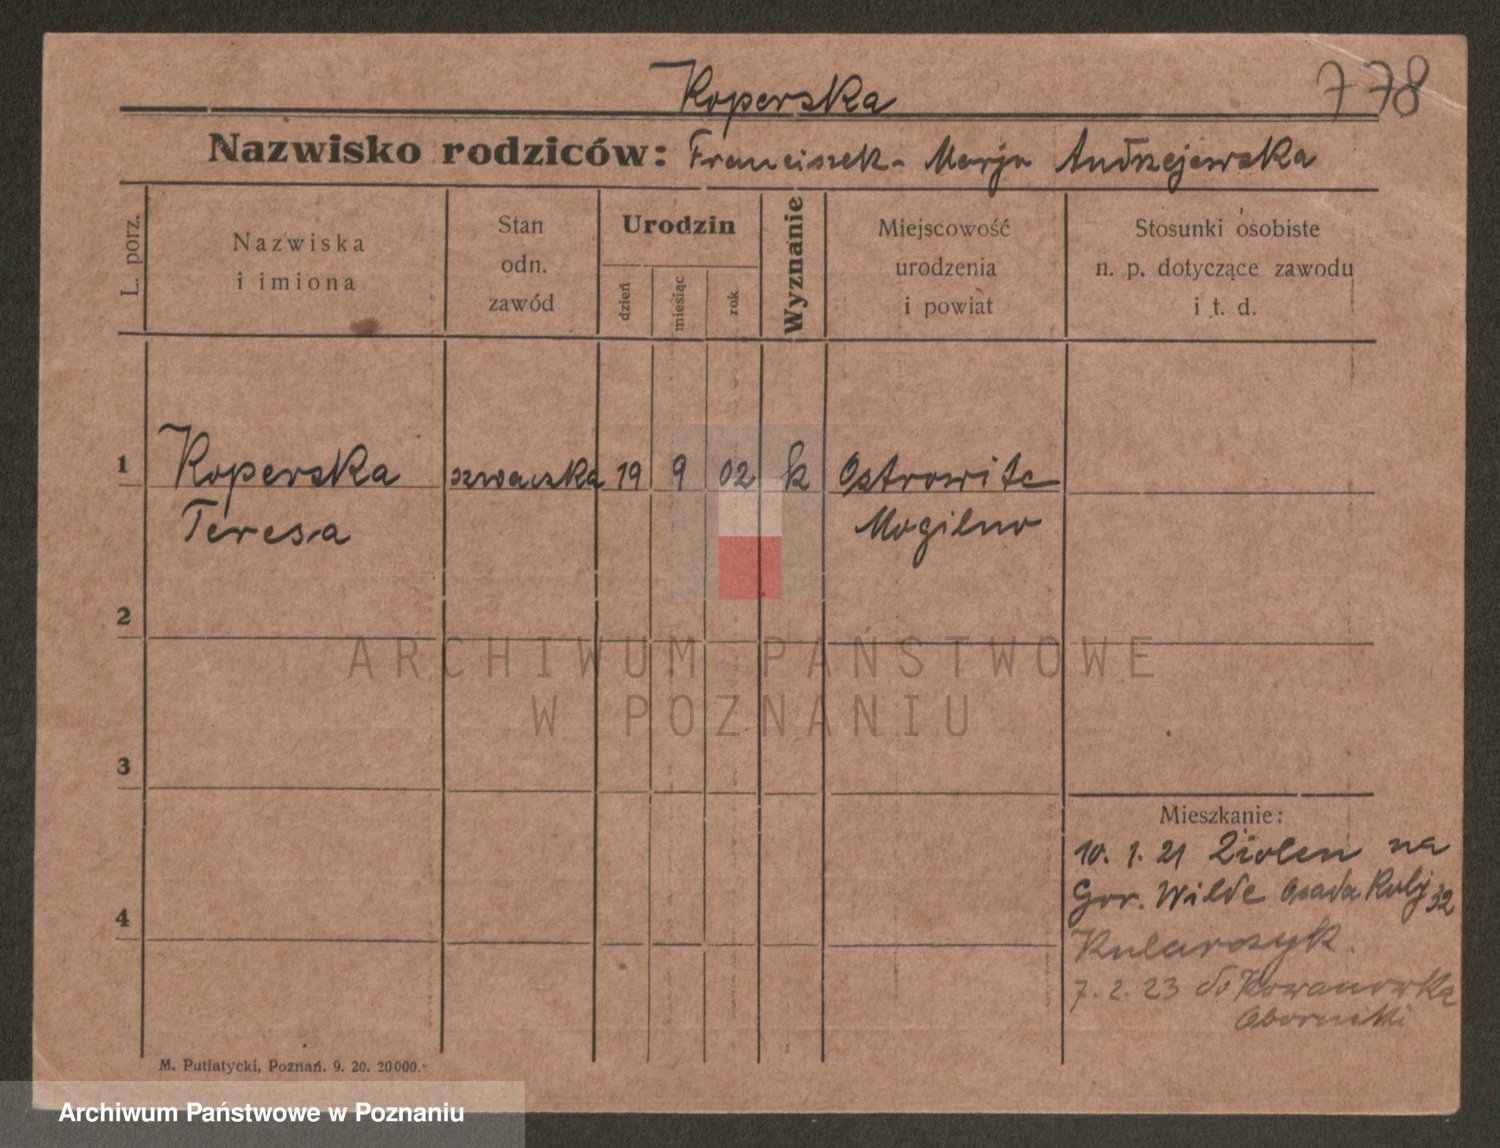 Koperska
778
Nazwisko rodziców: Franciszek - Marja Andrzejewska
L. porz.
Nazwiska
i imiona
Stan
odn.
zawód
Urodzin
dzień
miesiąc
rok
Wyznanie
Miejscowość
urodzenia
i powiat
Stosunki osobiste
n. p. dotyczące zawodu
i t. d.
1 Koperska szwaczka 19 9 02 k Ostrowite
Teresa Mogilno
2
ARCHIWUM PAŃSTWOWE
W POZNANIU
3
Mieszkanie:
10. 1. 21 na
4 Gor. Wilde Osada 32
7. 2. 23 do Kowanówka
Oborniki
M. Putiatycki, Poznań. 9. 20. 20000.-
Archiwum Państwowe w Poznaniu